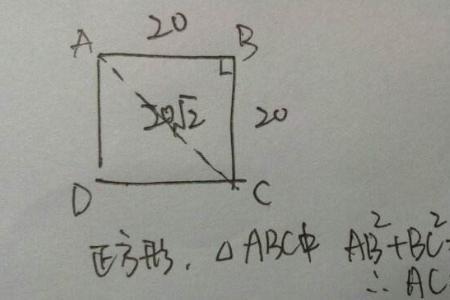 20
A B
20√2 20
D C
正方形. △ABC中 AB²+BC²=
∴ AC